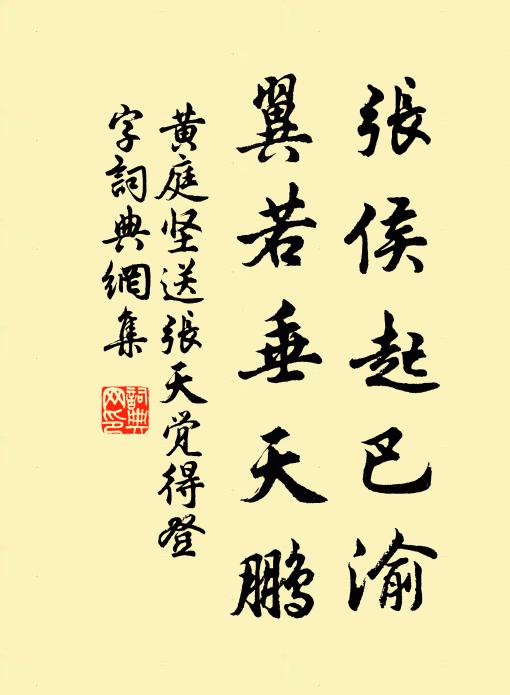 張侯起巴渝
翼若垂天鵬
黄庭坚送張天觉得登
字詞典網集
詞典
网印